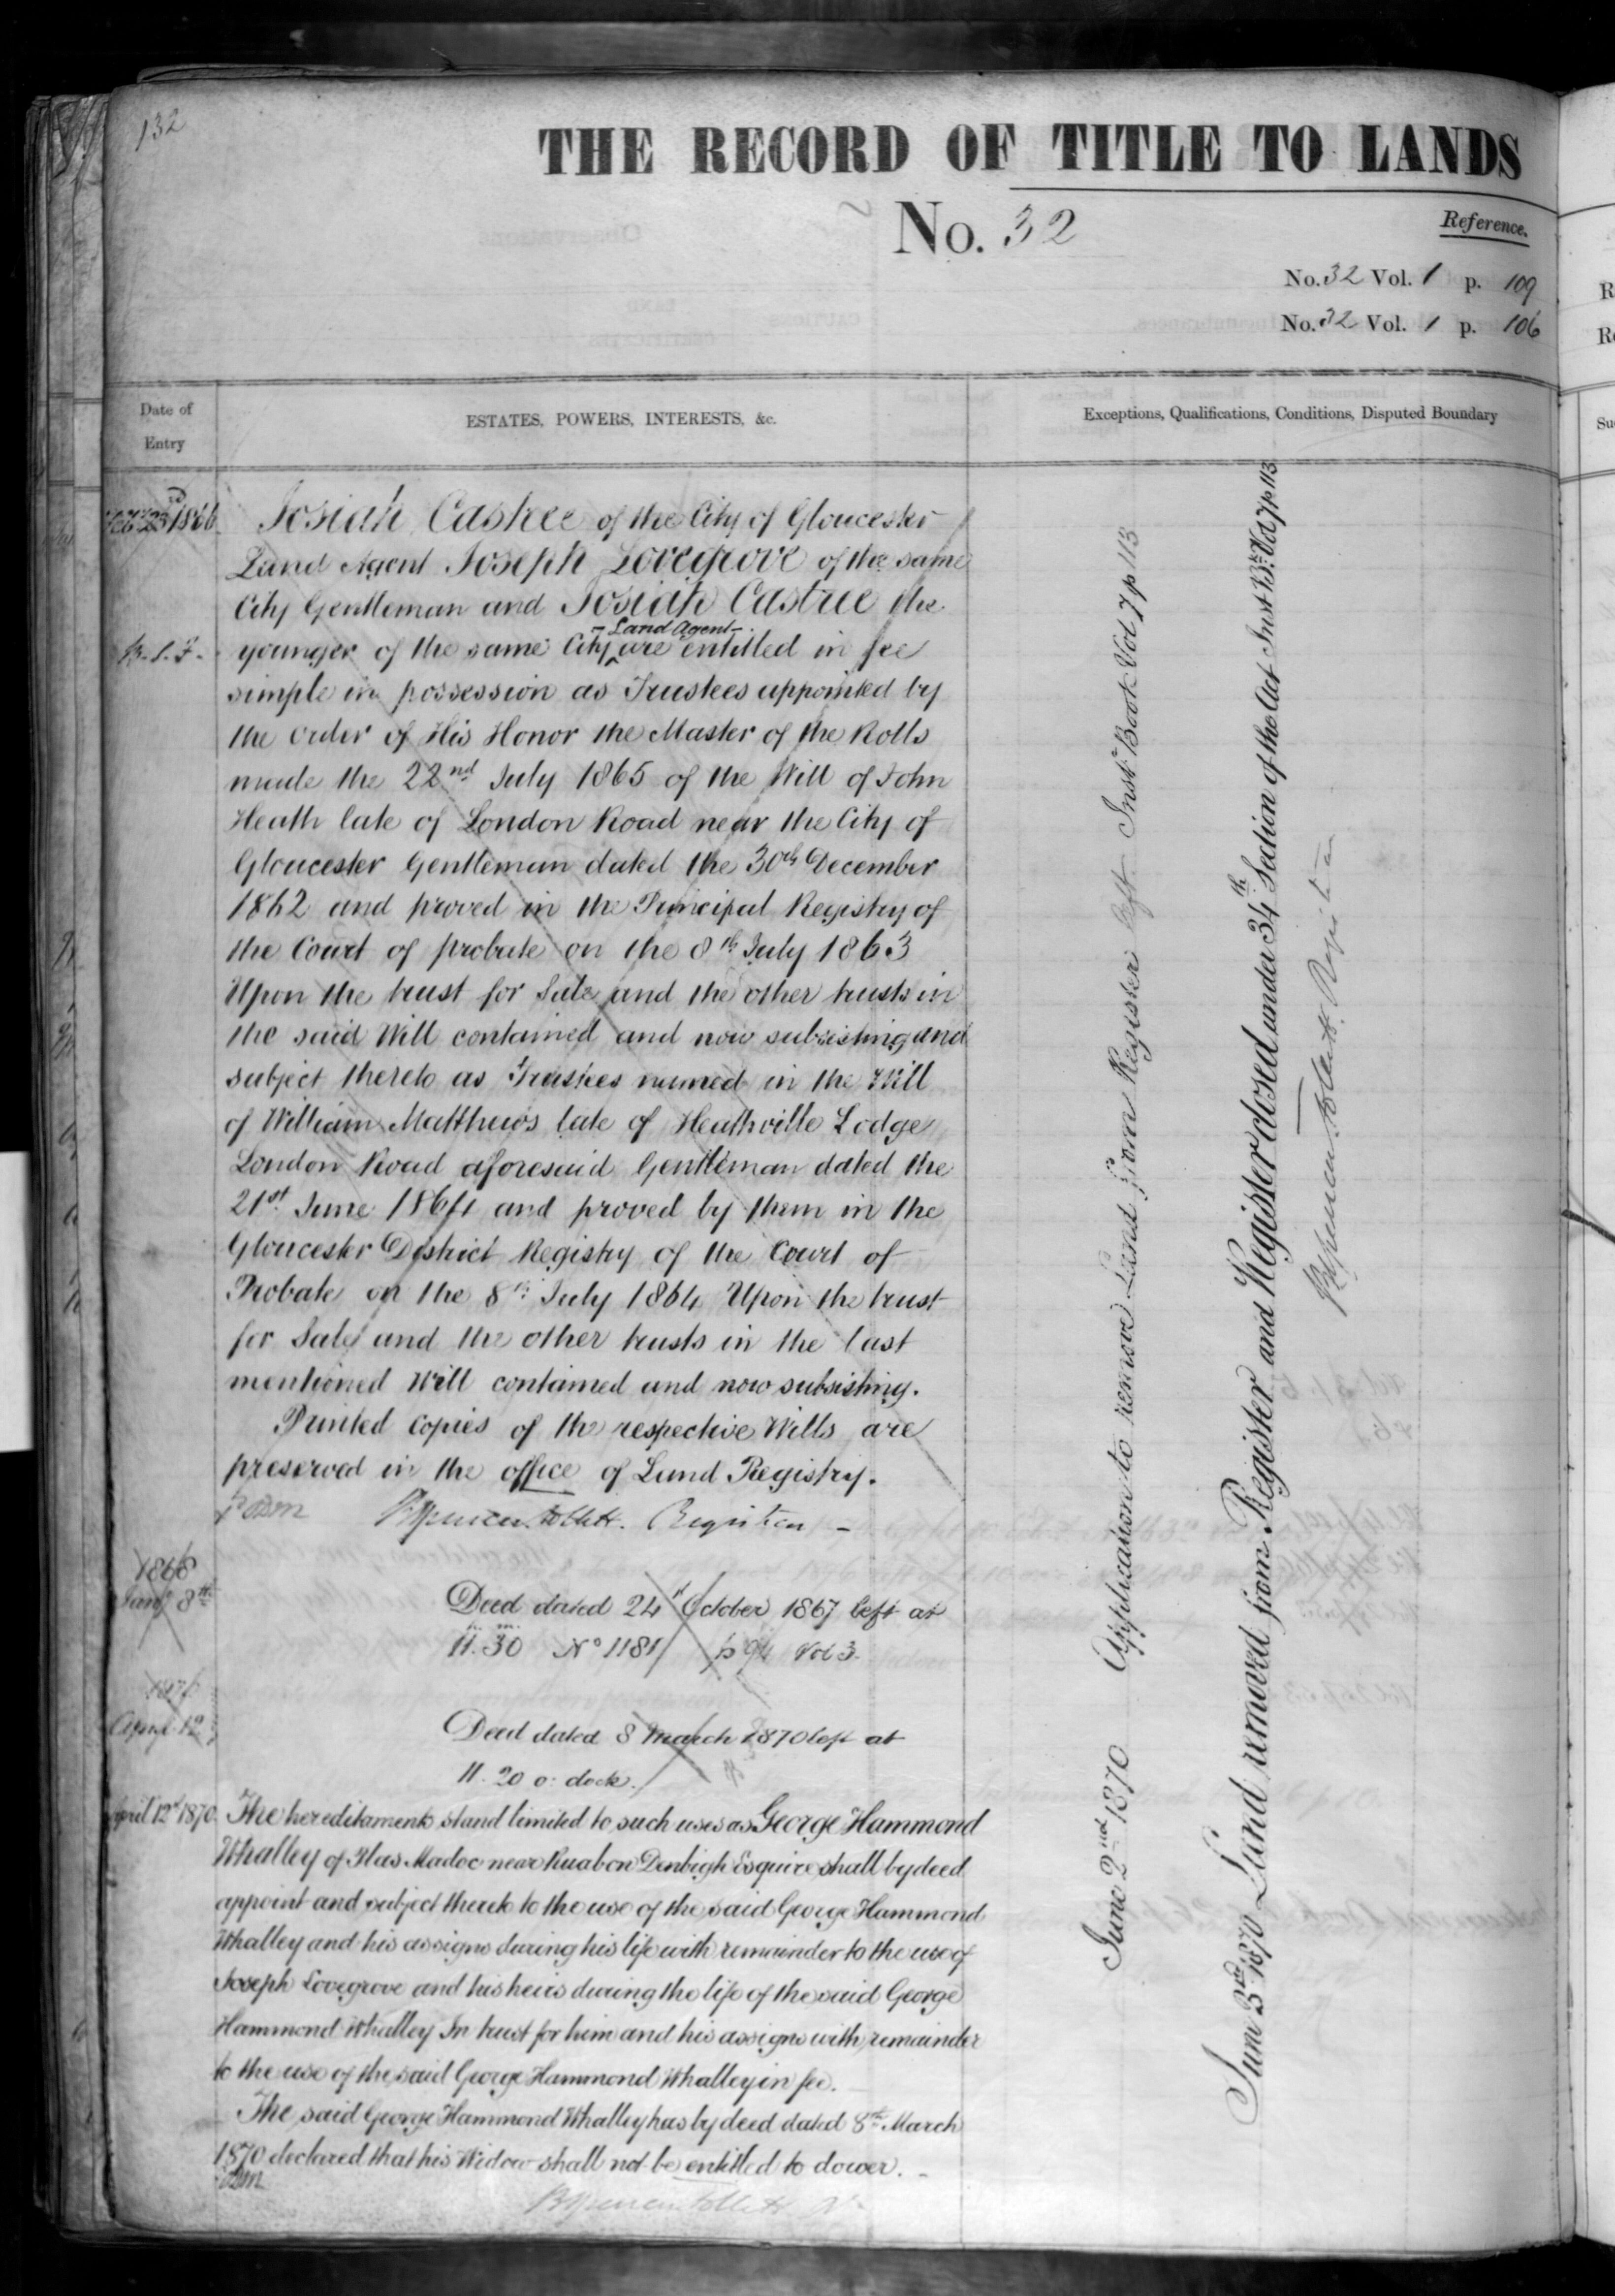 132
THE RECORD OF TITLE TO LANDS
No. 32
Reference.
No. 32 Vol. 1 p. 109
No. 32 Vol. 1 p. 106
Date of Entry
ESTATES, POWERS, INTERESTS, &c.
Exceptions, Qualifications, Conditions, Disputed Boundary
23rd 1866
Josiah Castree of the City of Gloucester
Land Agent Joseph Lovegrove of the same
City Gentleman and Josiah Castree the
- Land Agent -
younger of the same City are entitled in fee
simple in possession as Trustees appointed by
the order of His Honor the Master of the Rolls
made the 22nd July 1865 of the Will of John
Heath late of London Road near the City of
Gloucester Gentleman dated the 30th December
1862 and proved in the Principal Registry of
the Court of probate on the 8th July 1863
Upon the trust for Sale and the other trusts in
the said Will contained and now subsisting and
subject thereto as Trustees named in the Will
of William Matthews late of Heathville Lodge
London Road aforesaid Gentleman dated the
21st June 1864 and proved by them in the
Gloucester District Registry of the Court of
Probate on the 8th July 1864 Upon the trust
for Sale and the other trusts in the last
mentioned Will contained and now subsisting.
Printed copies of the respective Wills are
preserved in the office of Land Registry.
Brent Spencer Follett. Registrar -
1868
Jany 8th
Deed dated 24th October 1867 left at
11.30 No 1181 p 94 Vol 3.
April 12
Deed dated 8 March 1870 left at
11.20 o'clock.
April 12th 1870.
The hereditaments stand limited to such uses as George Hammond
Whalley of Plas Madoc near Ruabon Denbigh Esquire shall by deed
appoint and subject thereto to the use of the said George Hammond
Whalley and his assigns during his life with remainder to the use of
Joseph Lovegrove and his heirs during the life of the said George
Hammond Whalley In trust for him and his assigns with remainder
to the use of the said George Hammond Whalley in fee.
The said George Hammond Whalley has by deed dated 8th March
1870 declared that his Widow shall not be entitled to dower. -
June 2nd 1870 Application to remove Land from Register left Inst. Book Vol 7 p 113
June 3rd 1870 Land removed from Register and Register closed under 34th Section of the Act Inst B. Vol 7 p 113